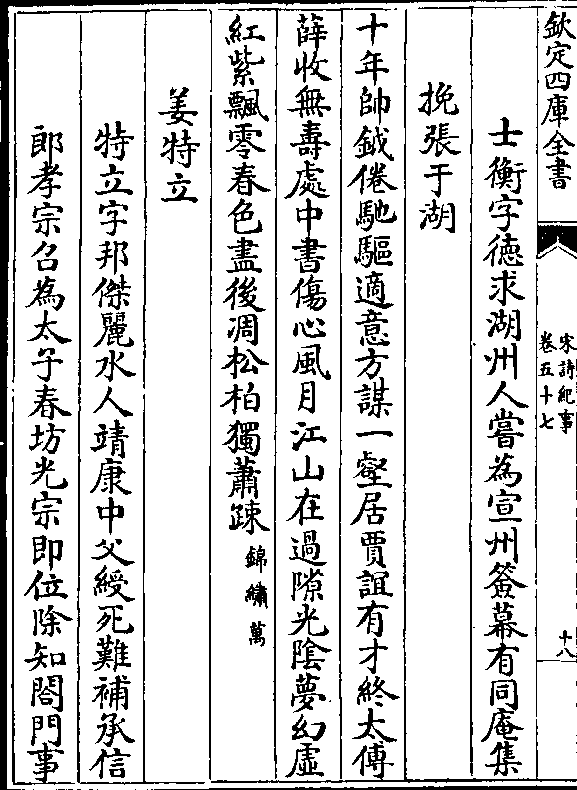 欽定四庫全書
宋詩紀事
卷五十七
十八
士衡字德求湖州人嘗為宣州簽幕有同庵集
挽張于湖
十年帥鉞倦馳驅適意方謀一壑居賈誼有才終太傅
薛收無壽處中書傷心風月江山在過隙光陰夢幻虛
紅紫飄零春色盡後凋松柏獨蕭踈錦繡萬
姜特立
特立字邦傑麗水人靖康中父綬死難補承信
郎孝宗召為太子春坊光宗即位除知閤門事